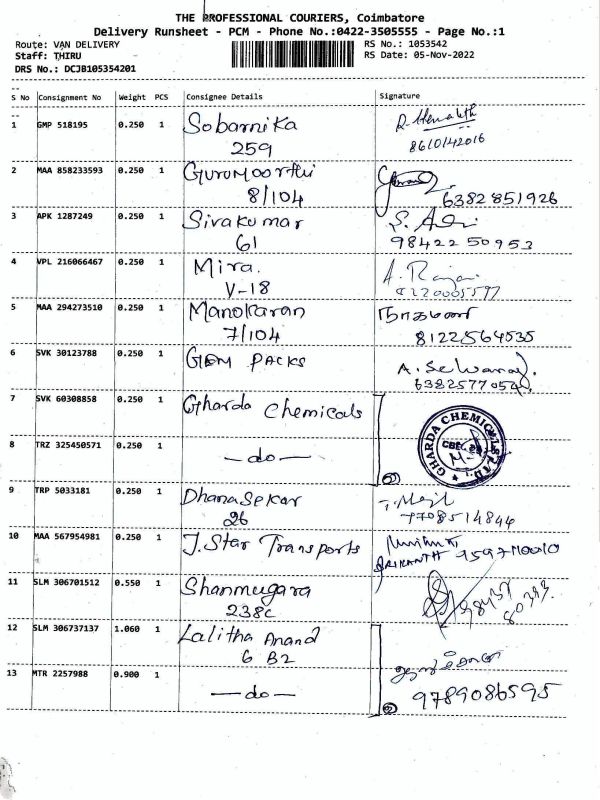 THE PROFESSIONAL COURIERS, Coimbatore
Delivery Runsheet - PCM - Phone No.:0422-3505555 - Page No.:1
Route: VAN DELIVERY RS No.: 1053542
Staff: THIRU RS Date: 05-Nov-2022
DRS No.: DCJB105354201
S No Consignment No Weight PCS Consignee Details Signature
1 GMP 518195 0.250 1 Sobarnika
259 8610142016
2 MAA 858233593 0.250 1 Gurumoorthi
8/104 6382851926
3 APK 1287249 0.250 1 Sivakumar
61 9842250953
4 VPL 216066467 0.250 1 Mira. A. Rajan
V-18
5 MAA 294273510 0.250 1 Manokaran நாகமணி
7/104 8122564535
6 SVK 30123788 0.250 1 GEM PACKS A. Selvaraj
6382577054
7 SVK 60308858 0.250 1 Gharda Chemicals
GHARDA CHEMICALS LTD.
8 TRZ 325450571 0.250 1 —do—
9 TRP 5033181 0.250 1 Dhanasekar
26 7708514844
10 MAA 567954981 0.250 1 J. Star Transports
SRIKANTH
11 SLM 306701512 0.550 1 Shanmugara
238C
12 SLM 306737137 1.060 1 Lalitha Anand
6 B2
13 MTR 2257988 0.900 1 —do— 9789086595